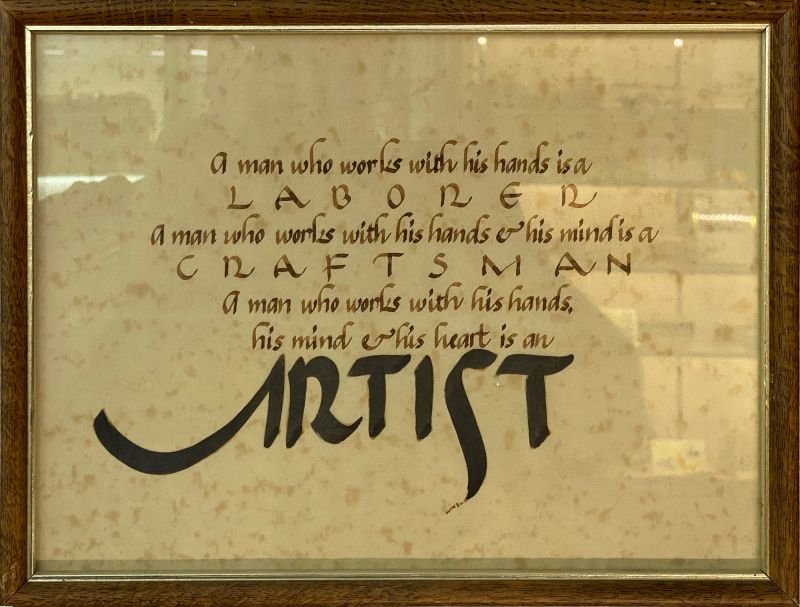 A man who works with his hands is a
LABORER
A man who works with his hands & his mind is a
CRAFTSMAN
A man who works with his hands,
his mind & his heart is an
ARTIST